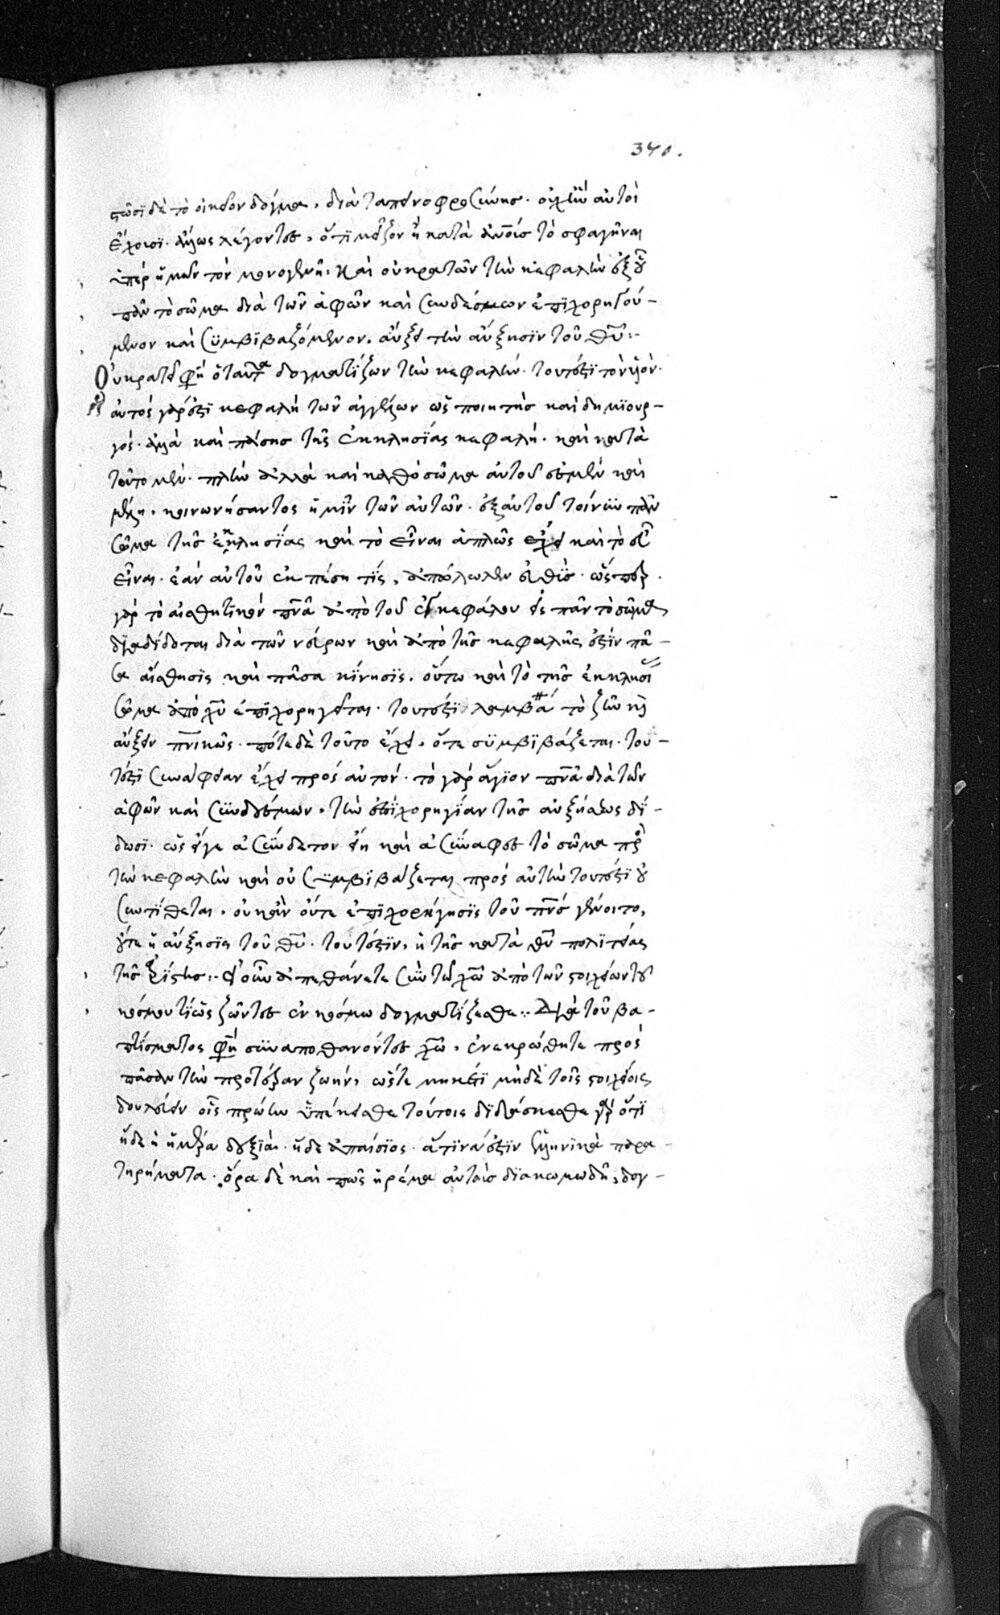 340.
στῶσϊ δὲ τὸ οἰκεῖον δόγμα, διὰ ταπεινοφροσύνης. ἣν αὐτοὶ
ἔχουσι. ἄλλως λέγοντες, ὅτι μεῖζον ἢ κατὰ ἀνοῖς τὸ σφαγῆναι
ὑπὲρ ἡμῶν τὸν μονογενῆ. Καὶ οὐ κρατῶν τὴν κεφαλὴν ἐξ οὗ
πᾶν τὸ σῶμα διὰ τῶν ἁφῶν καὶ συνδέσμων ἐπϊχορηγού-
μενον καὶ συμβϊβαζόμενον, αὔξει τὴν αὔξησϊν τοῦ θῦ:-
Οὐ κρατεῖ φη ὁ ταῦτα δογματίζων τὴν κεφαλήν. τουτέστϊ τὸν υἱόν.
αὐτὸς γάρ ἐστϊ κεφαλὴ τῶν ἀγγέλων ὡς ποιητὴς καὶ δημϊουρ-
γός. ἀλλὰ καὶ πάσης τῆς ἐκκλησΐας κεφαλή. καὶ κατὰ
τοῦτο μέν. πλὴν ἀλλὰ καὶ καθὸ σῶμα αὐτοῦ ἐσμὲν καὶ
μέλη, κοινωνήσαντος ἡμῖν τῶν αὐτῶν. ἐξ αὐτοῦ τοίνϋν πᾶν
σῶμα τῆς ἐκκλησΐας καὶ τὸ εἶναι ἁπλῶς ἔχει καὶ τὸ εὖ
εἶναι. ἐὰν αὐτοῦ ἐκπέση τϊς, ἀπόλωλεν εὐθύς. ὥσπερ
γὰρ τὸ αἰσθητικὸν πνᾶ ἀπὸ τοῦ ἐγκεφάλου εἰς πᾶν τὸ σῶμα
δϊαδίδοται διὰ τῶν νεύρων καὶ ἀπὸ τῆς κεφαλῆς ἐστϊν πᾶ-
σα αἴσθησϊς καὶ πᾶσα κΐνησϊς. οὕτω καὶ τὸ τῆς ἐκκλησΐ
σῶμα ἀπὸ χῦ ἐπϊχορηγεῖται. τουτέστϊ λαμβά τὸ ζῆν κὶ
αὔξειν πνϊκῶς. πότε δὲ τοῦτο ἔχει, ὅτε συμβϊβάζεται. του-
τέστι συνάφειαν ἔχει πρὸς αὐτόν. τὸ γὰρ ἅγϊον πνᾶ διὰ τῶν
ἁφῶν καὶ συνδέσμων, τὴν ἐπϊχορηγΐαν τῆς αὐξήσεως δί-
δωσϊ. ὡς εἴγε ἀσύνδετον εἴη καὶ ἀσύναφες τὸ σῶμα πρὸς
τὴν κεφαλὴν καὶ οὐ συμβϊβάζεται πρὸς αὐτὴν τουτέστϊ οὐ
συντίθεται, οὐκ ἂν οὔτε ἐπϊχορήγησϊς τοῦ πνς γένοιτο,
οὔτε ἡ αὔξησις τοῦ θῦ. τουτέστϊν, ἡ τῆς κατὰ θῦ πολϊτείας
τῆς ἀρίστης:- Εἰ οὖν ἀπεθάνετε σὺν τῷ χῶ ἀπὸ τῶν στοιχείων τοῦ
κόσμου τί ὡς ζῶντες ἐν κόσμω δογματίζεσθε:- Διὰ τοῦ βα-
πτίσματος φη συναποθανόντες χῶ, ἐνεκρώθητε πρὸς
πᾶσαν τὴν προτέραν ζωὴν, ὥστε μηκέτϊ μηδὲ τοῖς στοιχείοις
δουλεύειν οἷς πρώην ὑπέκεισθε τούτοις δϊδάσκεσθε γὰρ ὅτϊ
ἥδε ἡ ἡμέρα δεξϊά. ἥδε ἀπαίσϊος. ἅτϊνά ἐστϊν ἑλληνϊκὰ παρα-
τηρήματα. ὅρα δὲ καὶ πῶς ἠρέμα αὐτοὺς δϊακωμωδεῖ, δογ-